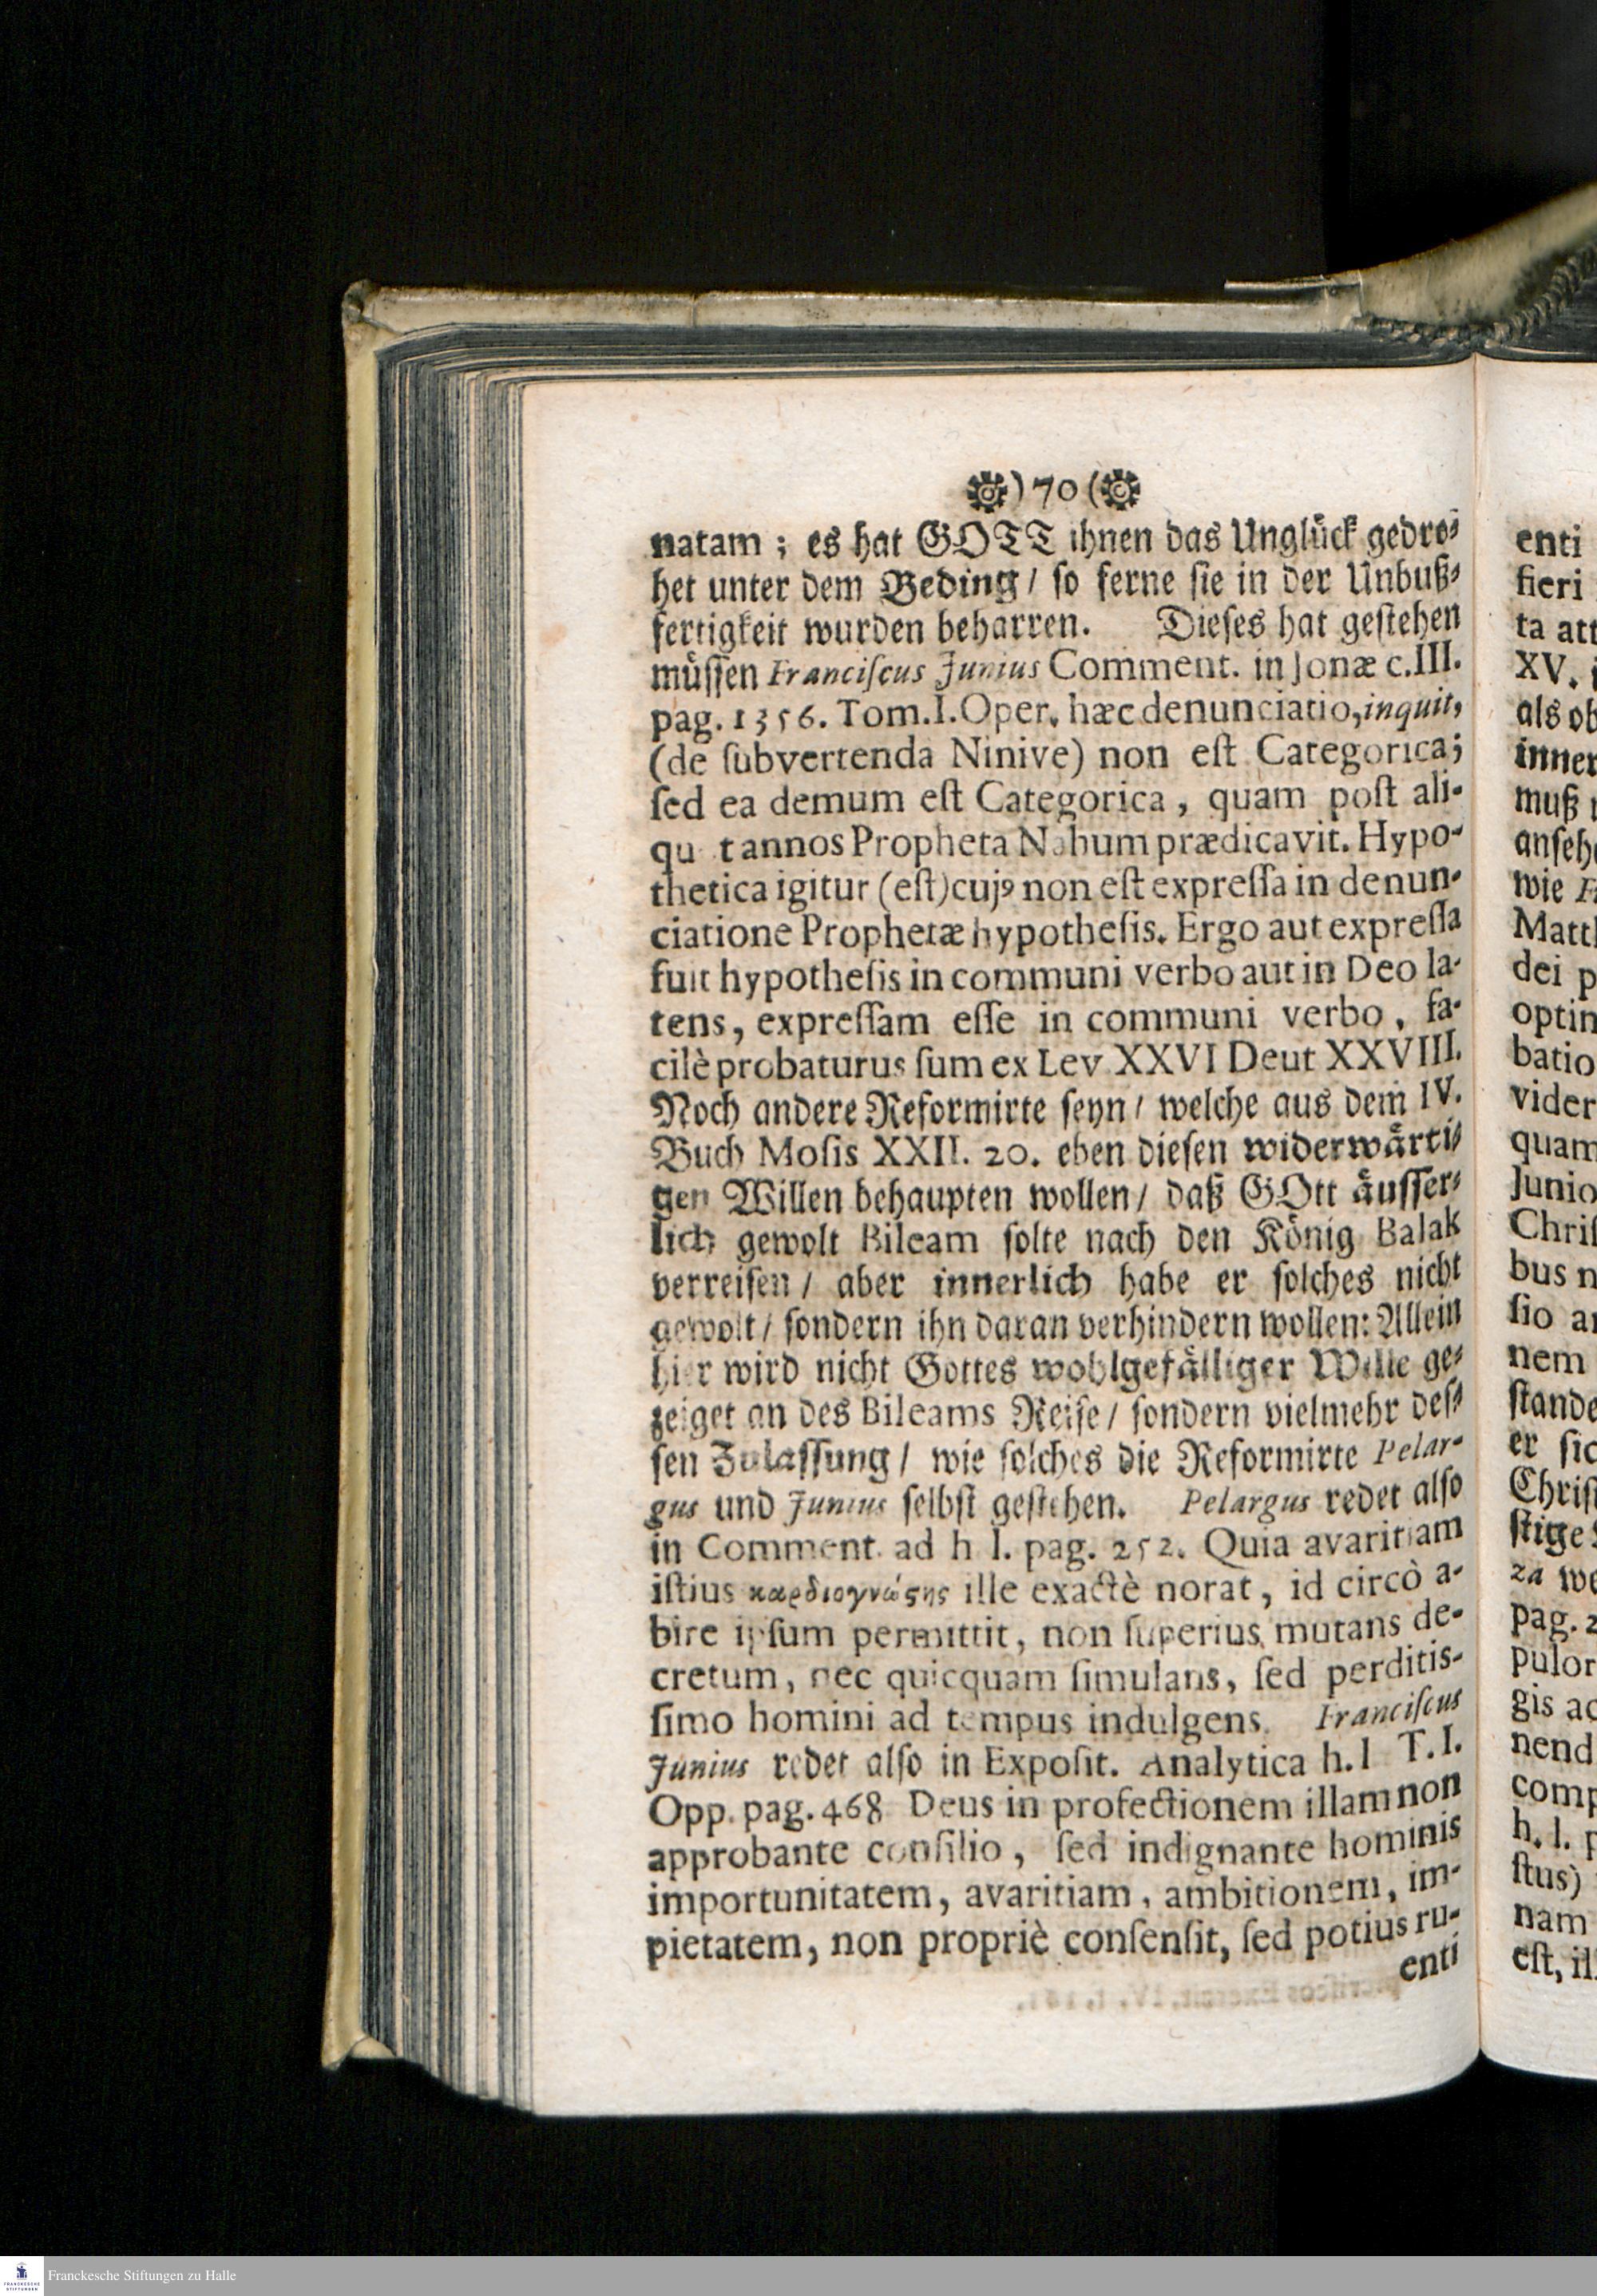 ) 70 (
natam ; es hat GOTT ihnen das Unglück gedro⸗
het unter dem Beding / so ferne sie in der Unbuß⸗
fertigkeit wurden beharren. Dieses hat gestehen
müssen Franciſcus Junius Comment. in Jonæ c.III.
pag. 1356. Tom.I.Oper. hæc denunciatio,inquit,
(de ſubvertenda Ninive) non eſt Categorica;
ſed ea demum eſt Categorica , quam poſt ali-
qu t annos Propheta Nahum prædicavit. Hypo-
thetica igitur (eſt)cujꝰ non eſt expreſſa in denun-
ciatione Prophetæ hypotheſis. Ergo aut expreſſa
fuit hypotheſis in communi verbo aut in Deo la-
tens, expreſſam eſſe in communi verbo , fa-
cilè probaturus ſum ex Lev XXVI Deut XXVIII.
Noch andere Reformirte seyn / welche aus dem IV.
Buch Moſis XXII. 20. eben diesen widerwärti⸗
gen Willen behaupten wollen / daß GOtt äusser⸗
lich gewolt Bileam solte nach den König Balak
verreisen / aber innerlich habe er solches nicht
gewolt / sondern ihn daran verhindern wollen: Allein
hier wird nicht Gottes wohlgefälliger Wille ge⸗
zeiget an des Bileams Reise / sondern vielmehr des⸗
sen Zulassung / wie solches die Reformirte Pelar-
gus und Junius selbst gestehen. Pelargus redet also
in Comment. ad h l. pag. 252. Quia avaritiam
iſtius καρδιογνώϛης ille exactè norat, id circò a-
bire ipſum permittit, non ſuperius mutans de-
cretum, nec quicquam ſimulans, ſed perditiſ-
ſimo homini ad tempus indulgens. Franciſcus
Junius redet also in Expoſit. Analytica h.l T.I.
Opp. pag.468 Deus in profectionem illam non
approbante conſilio , ſed indignante hominis
importunitatem, avaritiam , ambitionem, im-
pietatem, non propriè conſenſit, ſed potius ru-
enti
enti
fieri
ta att
XV.
als ob
inner
muß
anseh
wie
Matth
dei p
optim
batio
vider
quam
Junio
Chriſ
bus n
ſio a
nem
stande
er sic
Chris
stige
za we
pag. 2
pulor
gis ac
nend
comp
h. l. p
ſtus)
nam
eſt, il
Franckesche Stiftungen zu Halle
FRANCKESCHE
STIFTUNGEN